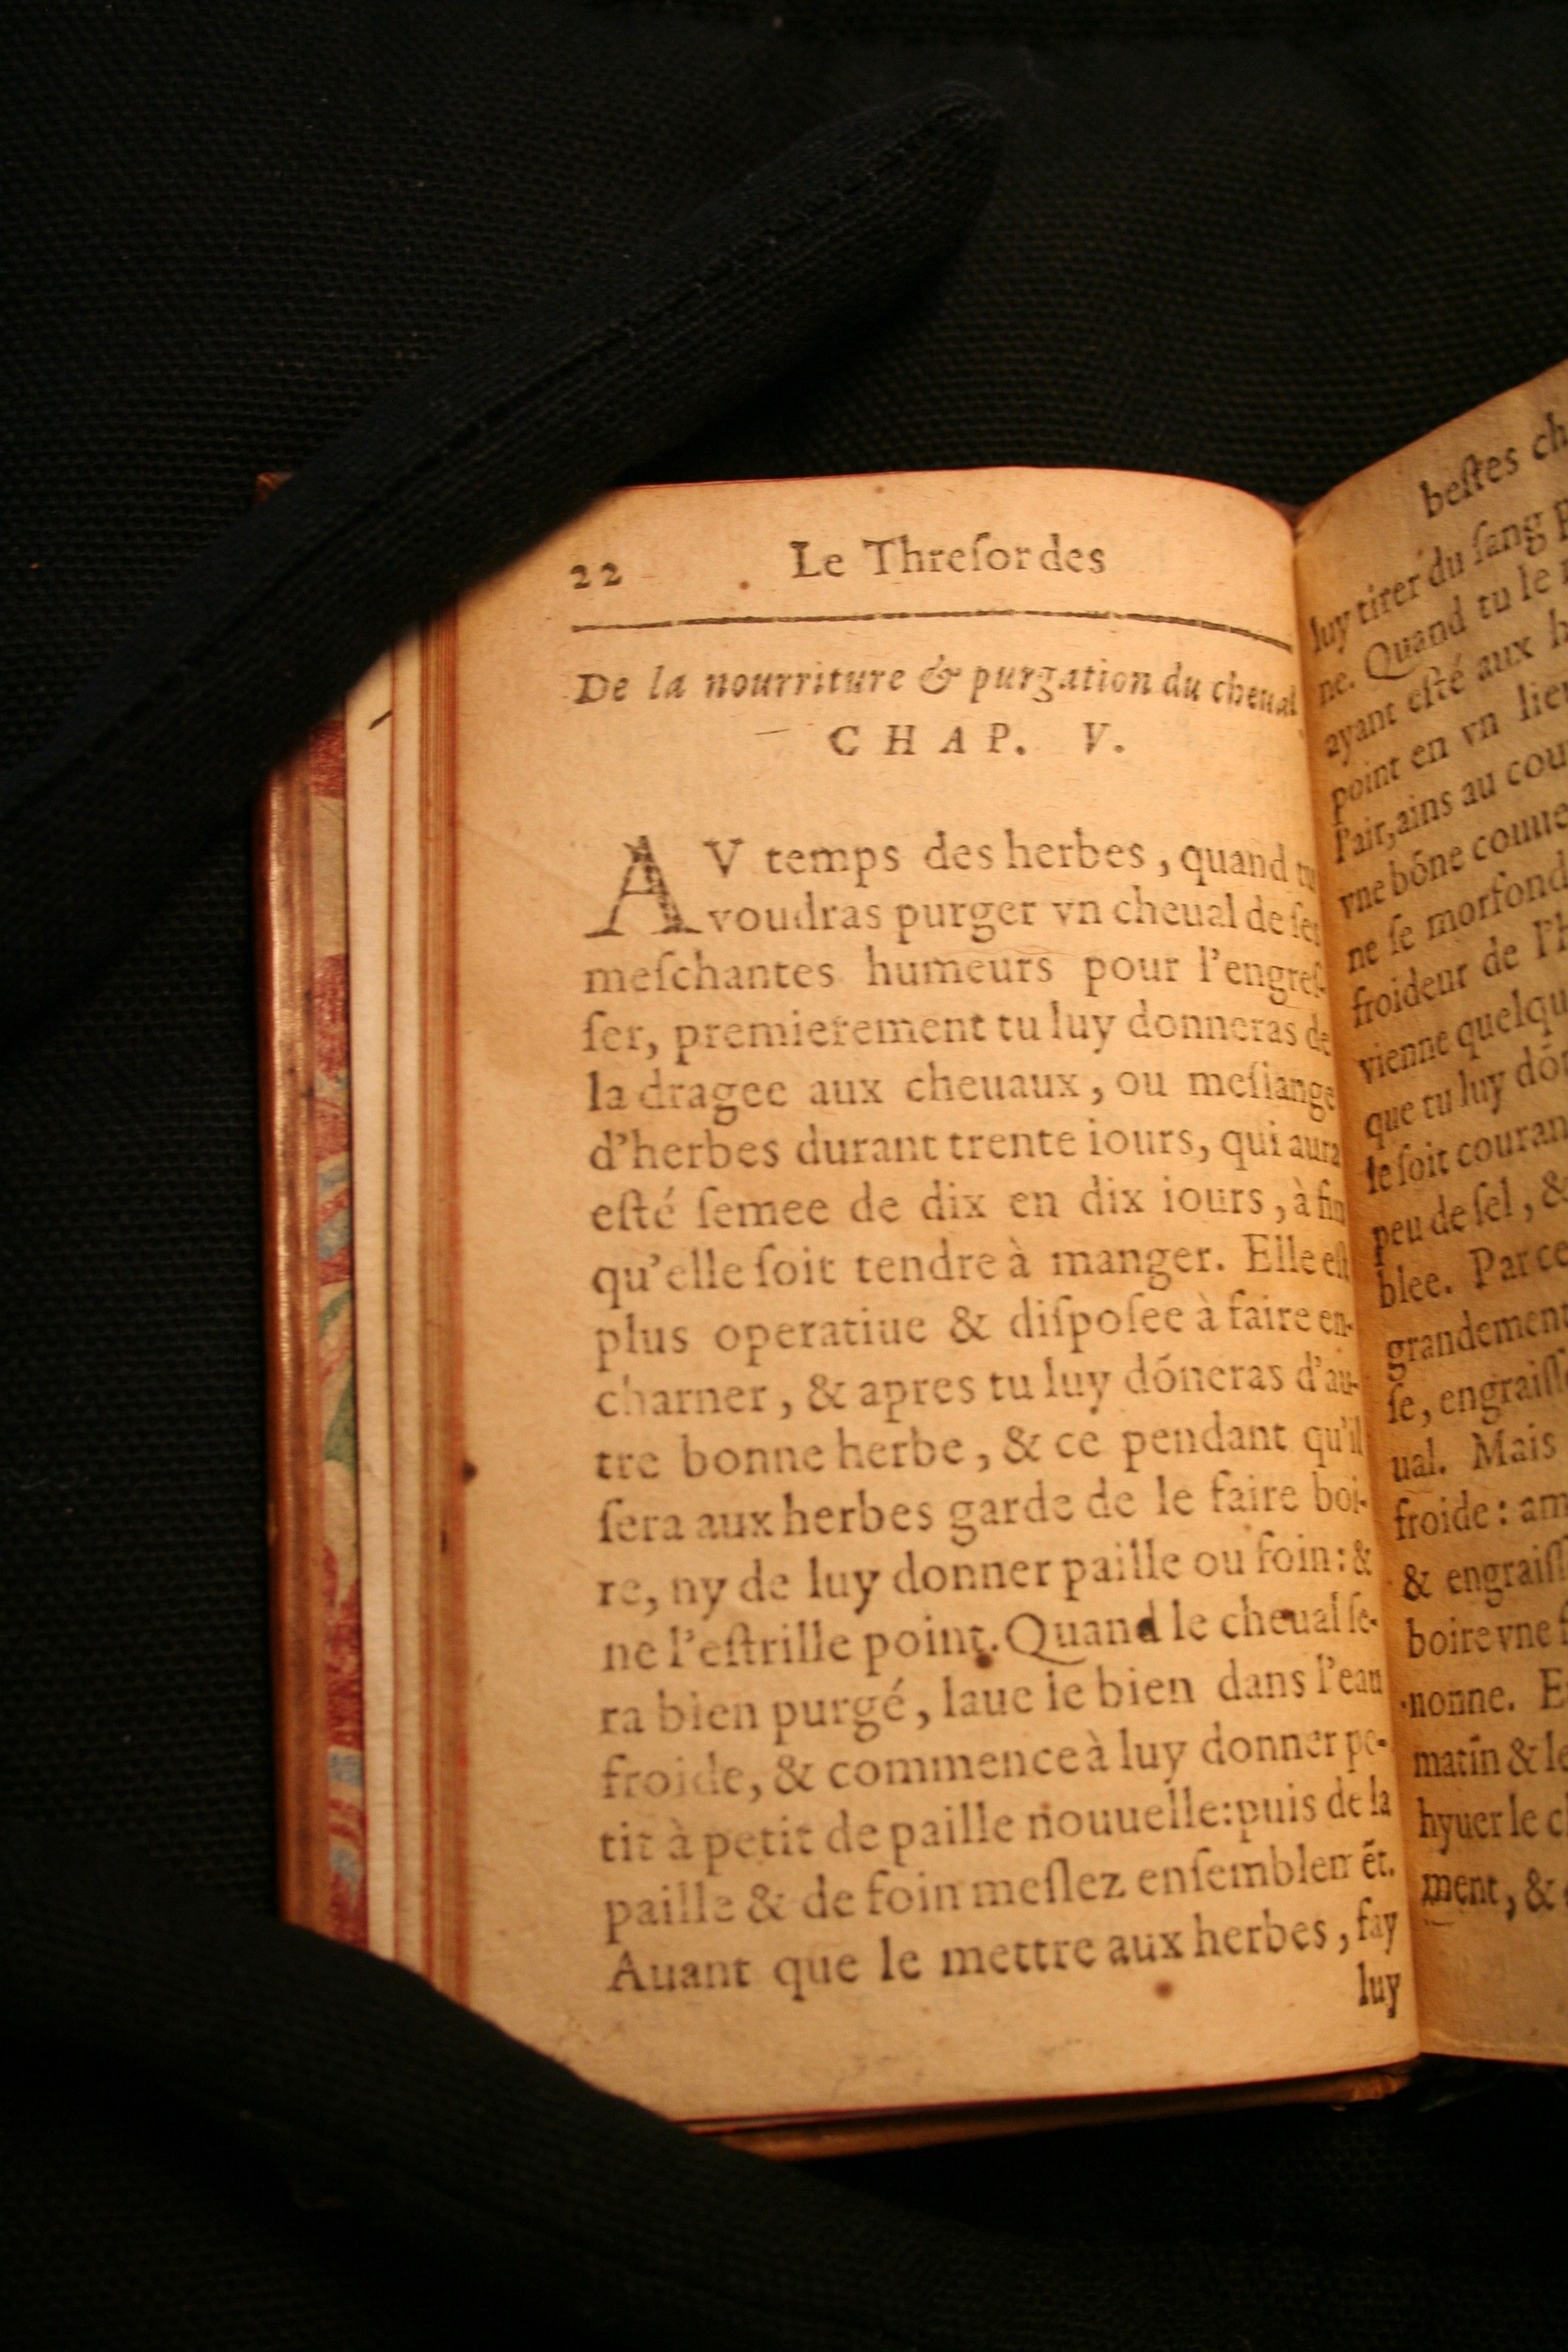 22 Le Threſor des
De la nourriture & purgation du cheual
CHAP. V.
AV temps des herbes, quand tu
voudras purger vn cheual de ſes
meſchantes humeurs pour l'engreſ-
ſer, premierement tu luy donneras de
la dragee aux cheuaux, ou meſlange
d'herbes durant trente iours, qui aura
eſté ſemee de dix en dix iours, à fin
qu'elle ſoit tendre à manger. Elle eſt
plus operatiue & diſpoſee à faire en-
charner, & apres tu luy dóneras d'au-
tre bonne herbe, & ce pendant qu'il
ſera aux herbes garde de le faire boi-
re, ny de luy donner paille ou foin: &
ne l'eſtrille point. Quand le cheual ſe-
ra bien purgé, laue le bien dans l'eau
froide, & commence à luy donner pe-
tit à petit de paille nouuelle: puis de la
paille & de foin meſlez enſemblemēt.
Auant que le mettre aux herbes, fay
luy
beſtes ch
luy titer du ſang p
ne. Quand tu le
ayant eſté aux h
point en vn lieu
l'air, ains au cou
vne bōne couue
ne ſe morfond
froideur de l'h
vienne quelqu
que tu luy dō
le ſoit couran
peu de ſel, &
blee. Par ce
grandement
ſe, engraiſſ
ual. Mais
froide: am
& engraiſſ
boire vne
nonne. E
matin & le
hyuer le c
ment, &